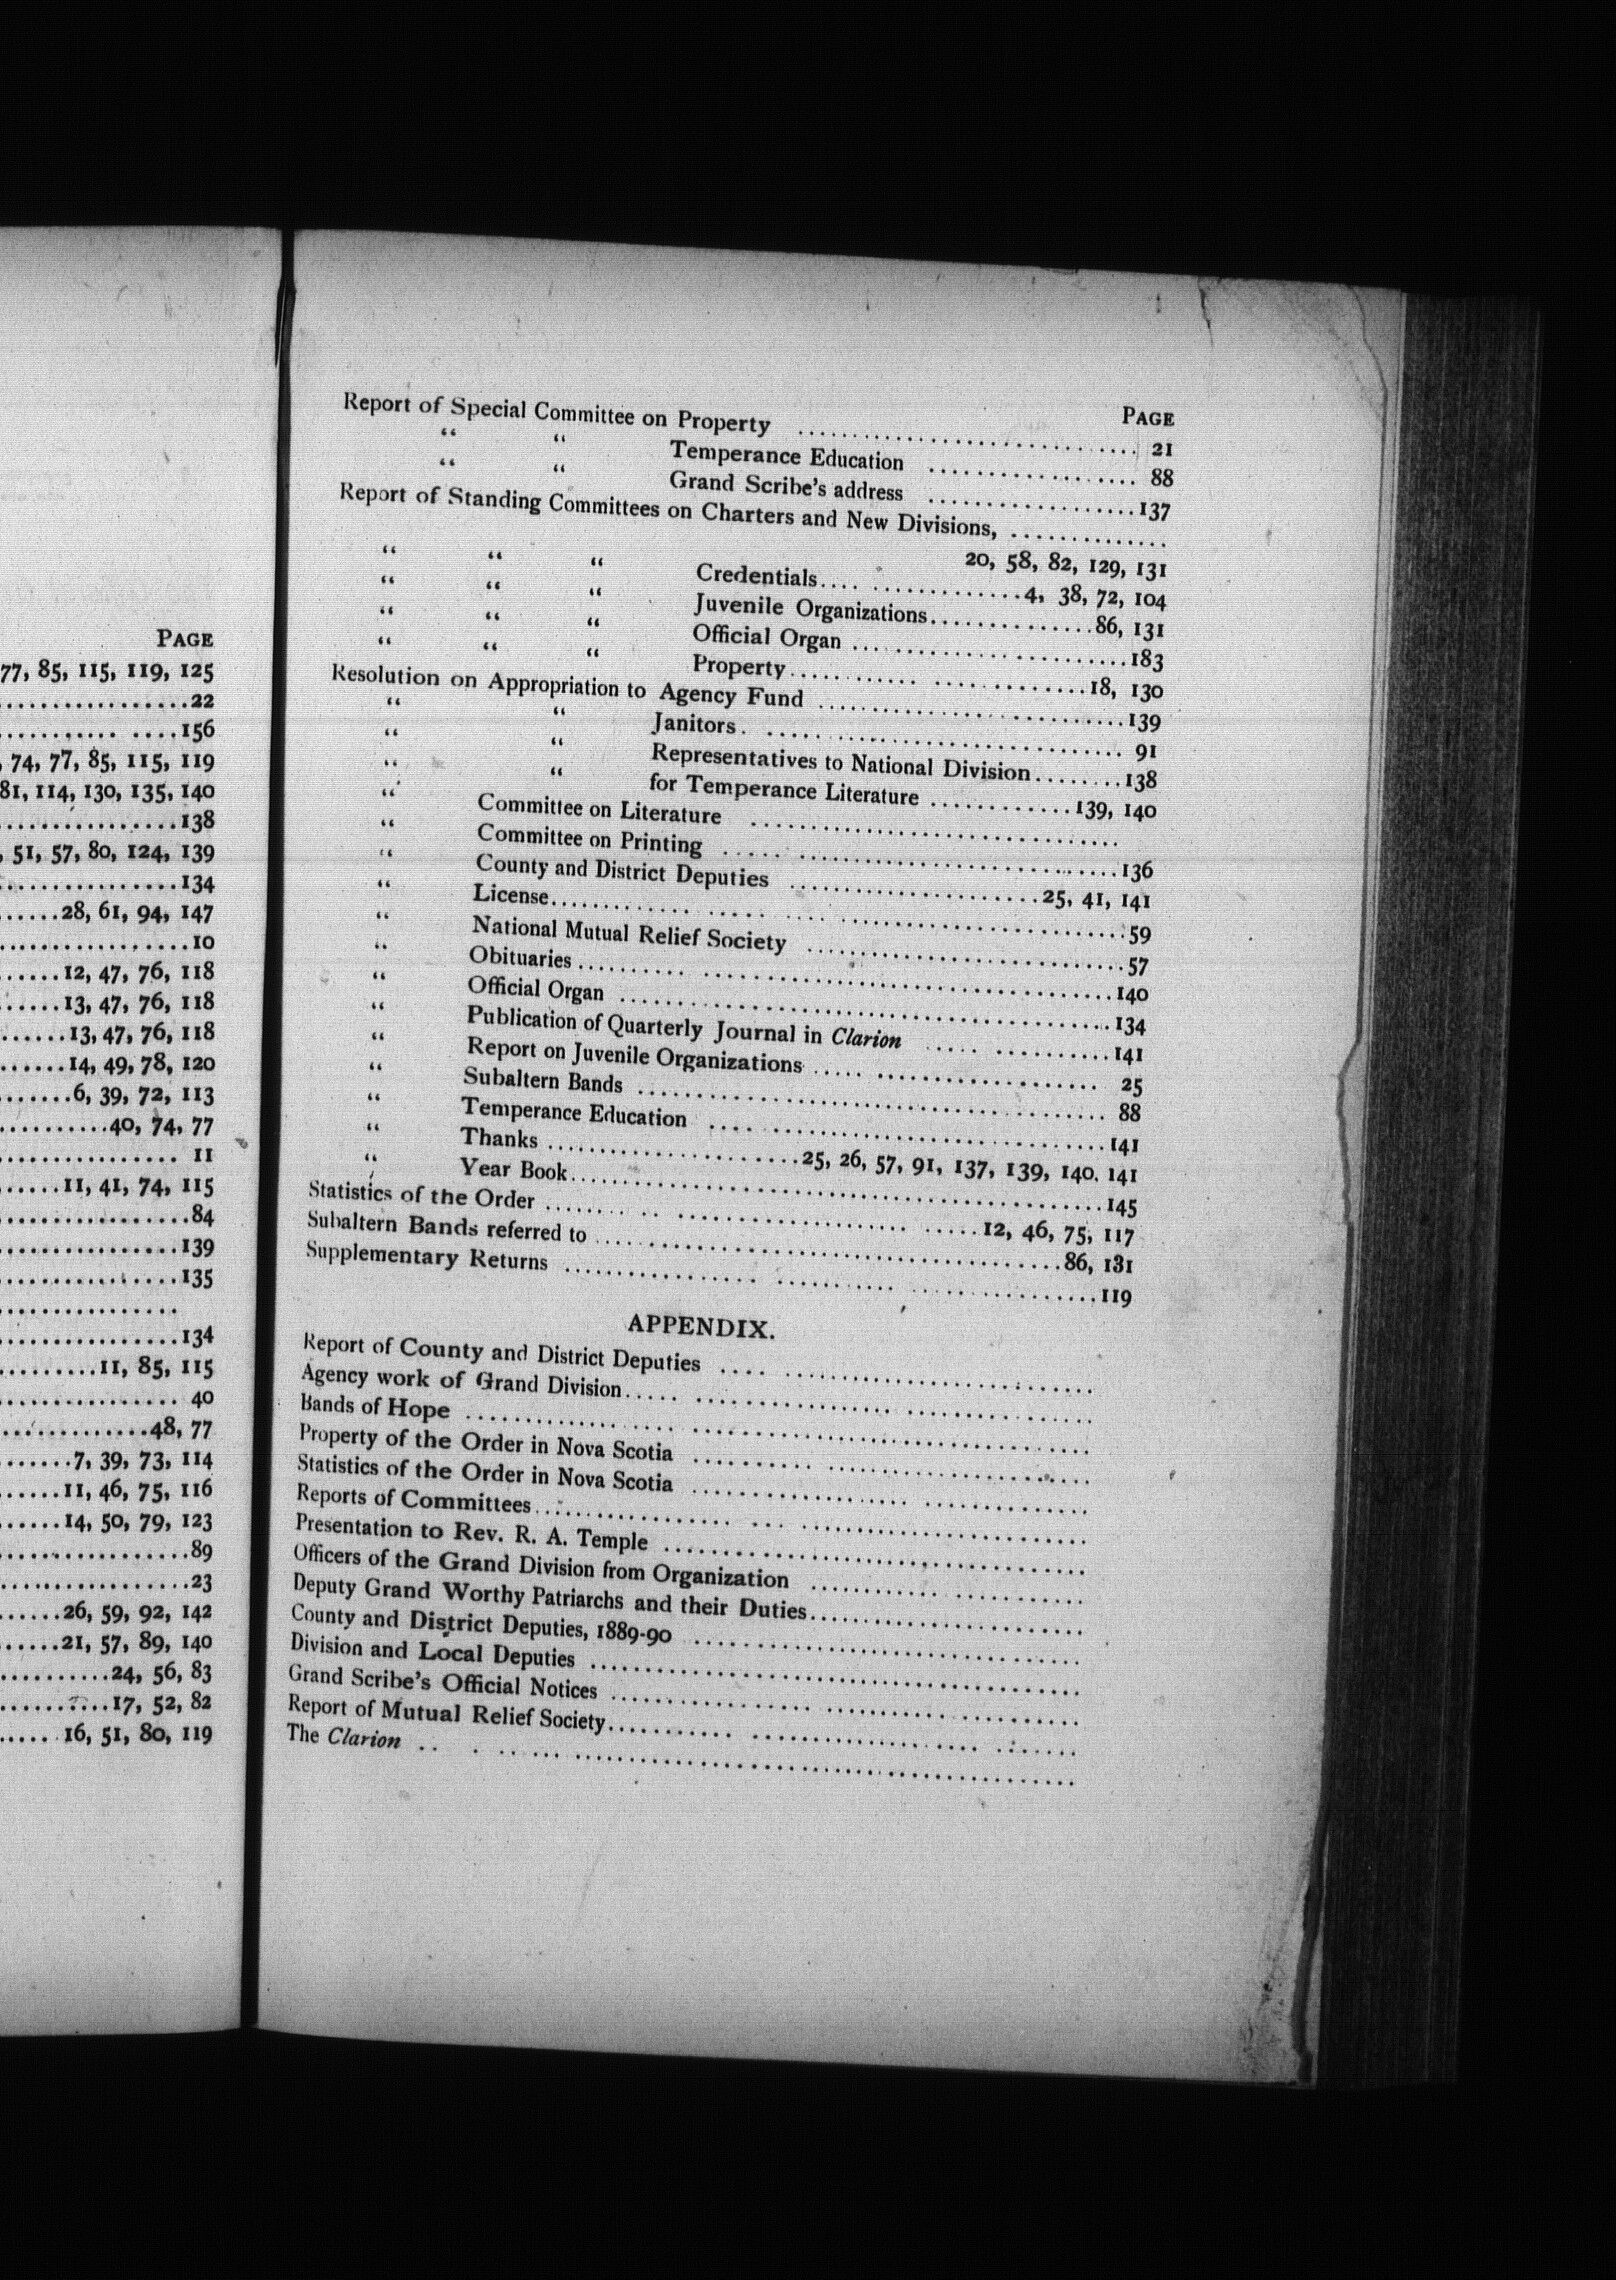 PAGE
77, 85, 115, 119, 125
22
156
, 74, 77, 85, 115, 119
81, 114, 130, 135, 140
138
, 51, 57, 80, 124, 139
134
28, 61, 94, 147
10
12, 47, 76, 118
13, 47, 76, 118
13, 47, 76, 118
14, 49, 78, 120
6, 39, 72, 113
40, 74, 77
11
11, 41, 74, 115
84
139
135
134
11, 85, 115
40
48, 77
7, 39, 73, 114
11, 46, 75, 116
14, 50, 79, 123
89
23
26, 59, 92, 142
21, 57, 89, 140
24, 56, 83
17, 52, 82
16, 51, 80, 119
PAGE
Report of Special Committee on Property ........ 21
" " Temperance Education ........ 88
" " Grand Scribe's address ........ 137
Report of Standing Committees on Charters and New Divisions, ........
20, 58, 82, 129, 131
" " " Credentials ........ 4, 38, 72, 104
" " " Juvenile Organizations ........ 86, 131
" " " Official Organ ........ 183
" " " Property ........ 18, 130
Resolution on Appropriation to Agency Fund ........ 139
" " Janitors ........ 91
" " Representatives to National Division ........ 138
" " for Temperance Literature ........ 139, 140
" Committee on Literature ........
" Committee on Printing ........ 136
" County and District Deputies ........ 25, 41, 141
" License ........ 59
" National Mutual Relief Society ........ 57
" Obituaries ........ 140
" Official Organ ........ 134
" Publication of Quarterly Journal in Clarion ........ 141
" Report on Juvenile Organizations ........ 25
" Subaltern Bands ........ 88
" Temperance Education ........ 141
" Thanks ........ 25, 26, 57, 91, 137, 139, 140. 141
" Year Book ........ 145
Statistics of the Order ........ 12, 46, 75, 117
Subaltern Bands referred to ........ 86, 131
Supplementary Returns ........ 119
APPENDIX.
Report of County and District Deputies ........
Agency work of Grand Division ........
Bands of Hope ........
Property of the Order in Nova Scotia ........
Statistics of the Order in Nova Scotia ........
Reports of Committees ........
Presentation to Rev. R. A. Temple ........
Officers of the Grand Division from Organization ........
Deputy Grand Worthy Patriarchs and their Duties ........
County and District Deputies, 1889-90 ........
Division and Local Deputies ........
Grand Scribe's Official Notices ........
Report of Mutual Relief Society ........
The Clarion ........